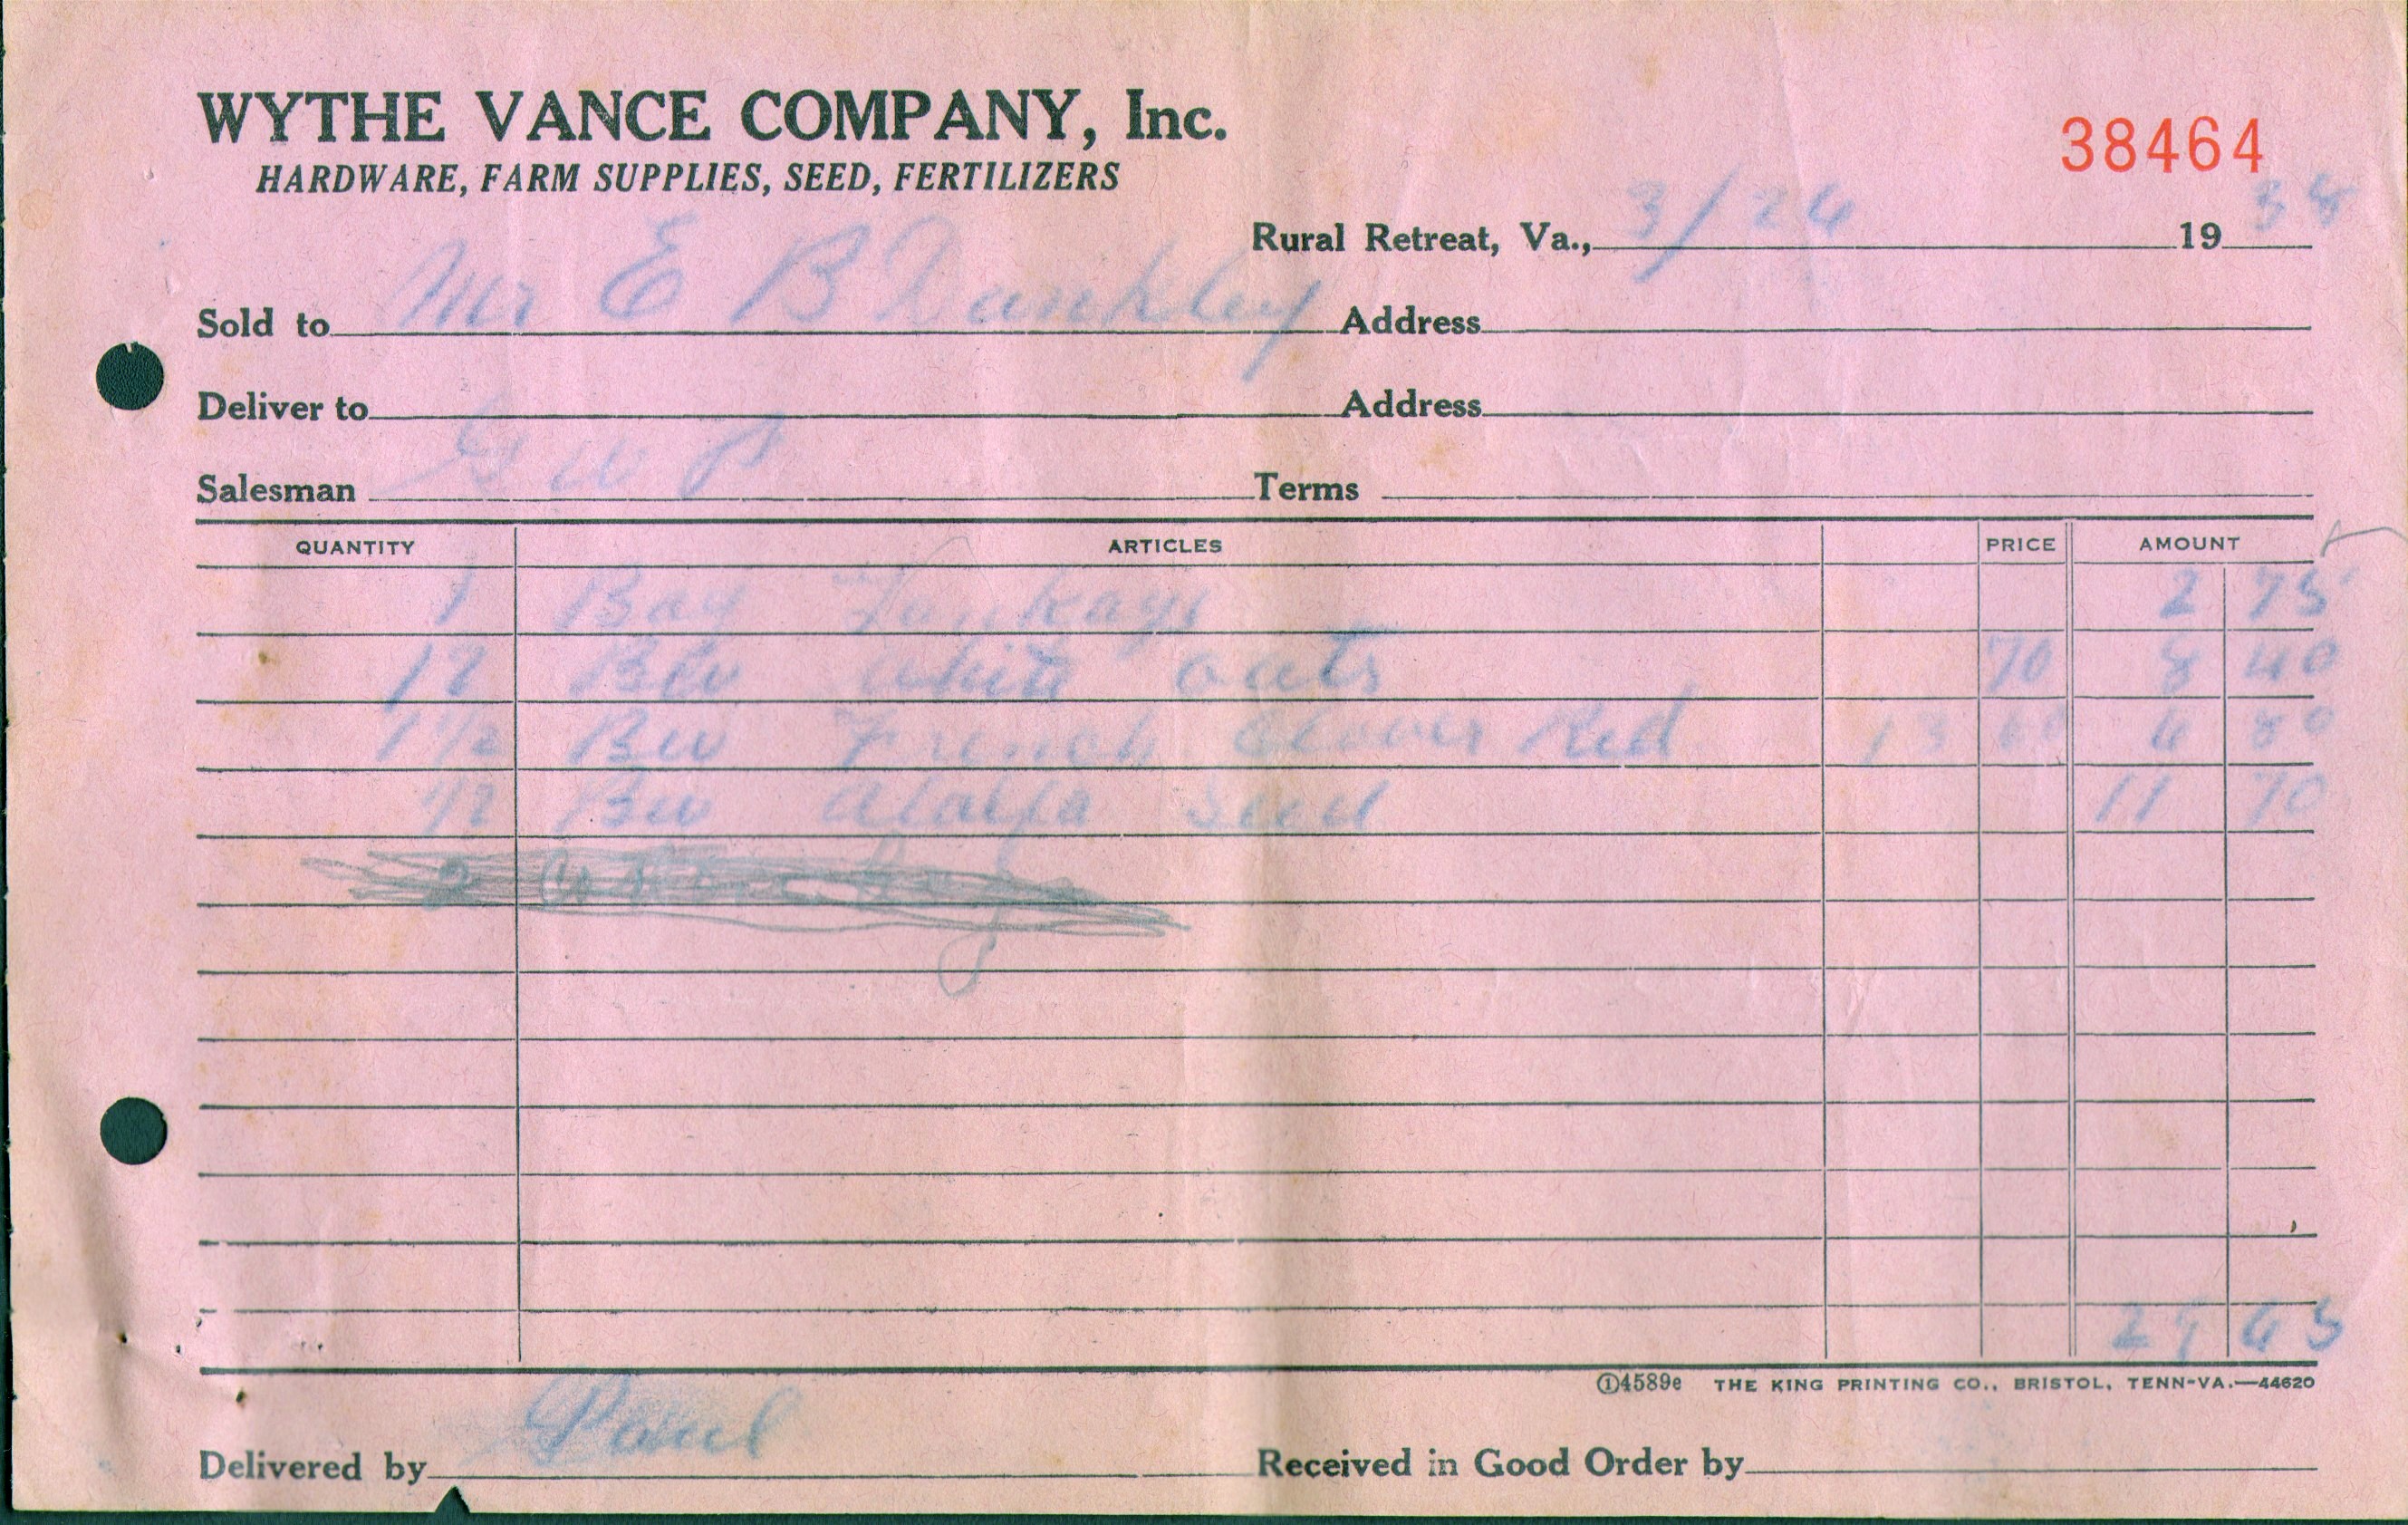 WYTHE VANCE COMPANY, Inc.
38464
HARDWARE, FARM SUPPLIES, SEED, FERTILIZERS
Rural Retreat, Va., 19
Sold to Mr E B Address
Deliver to Address
Salesman Terms
QUANTITY ARTICLES PRICE AMOUNT
1 Bag Tankage 2 75
12 Bu white oats 70 8 40
Bu French Clover Red 13 60 6 80
1/2 Bu Alalfa Seed 11 70
29 65
①4589e THE KING PRINTING CO., BRISTOL, TENN-VA.—44620
Delivered by Paul Received in Good Order by